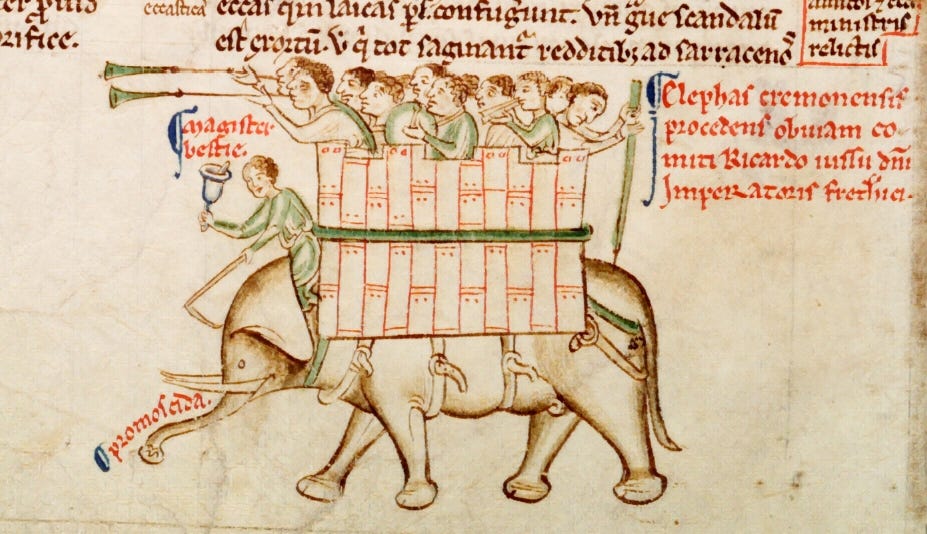 rifice.
eccastica
eccas qm laicas pt confugiunt. Vñ gue scandalū
est exortū. V q̄ tot saginant̄ redditibz ad sarracenos
ministris
relictis
Magister
bestie.
Elephas cremonensis
procedens obuiam co-
miti Ricardo iussu dñi
Imperatoris fretherici.
promoscida.